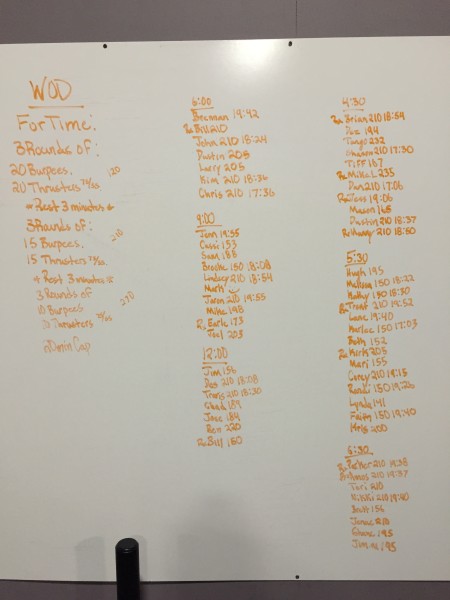 WOD
For Time:
3 Rounds of:
20 Burpees.
20 Thrusters 75/55 120
* Rest 3 minutes *
3 Rounds of:
15 Burpees. 210
15 Thrusters 75/55
* Rest 3 minutes *
3 Rounds of
10 Burpees 270
10 Thrusters 75/55
20min Cap
6:00
Brennan 19:42
Rx Bill 210
John 210 18:24
Dustin 208
Larry 205
Kim 210 18:36
Chris 210 17:36
9:00
Jenn 19:55
Cassie 153
Sean 188
Brooke 150 18:08
Lindsey 210 18:54
Mark
Jaron 210 19:55
Mike 198
Rx Earle 173
Joel 203
12:00
Jim 156
Des 210 18:08
Travis 210 18:30
Chad 189
Jose 184
Ben 220
Rx Bill 150
4:30
Rx Brian 210 18:54
194
232
210 17:30
Tiff 167
Rx Mike L 235
Dan 210 17:06
Rx 19:06
Mason 165
Dustin 210 18:37
Rx 210 18:50
5:30
Hugh 195
150 18:22
150 18:30
Rx Trent 210 19:52
Lane 19:40
150 17:03
Beth 152
Rx Kirk 205
Mari 155
Corey 210 19:15
150 19:26
Lynda 141
150 19:40
Kris 200
6:30
Rx Parker 210 19:38
210 19:37
Tori 210
Nikki 210 19:40
156
Jamie 210
Shane 195
195